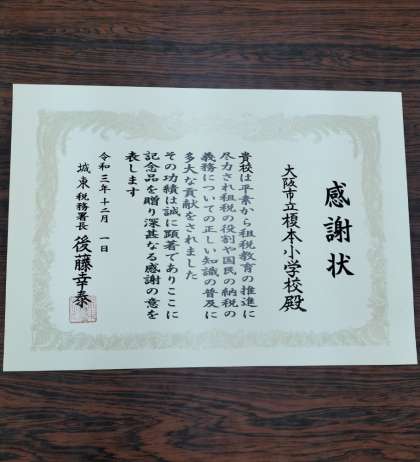 感謝状
大阪市立榎本小学校殿
貴校は平素から租税教育の推進に
尽力され租税の役割や国民の納税の
義務についての正しい知識の普及に
多大な貢献をされました
その功績は誠に顕著でありここに
記念品を贈り深甚なる感謝の意を
表します
令和三年十二月一日
城東税務署長 後藤幸泰